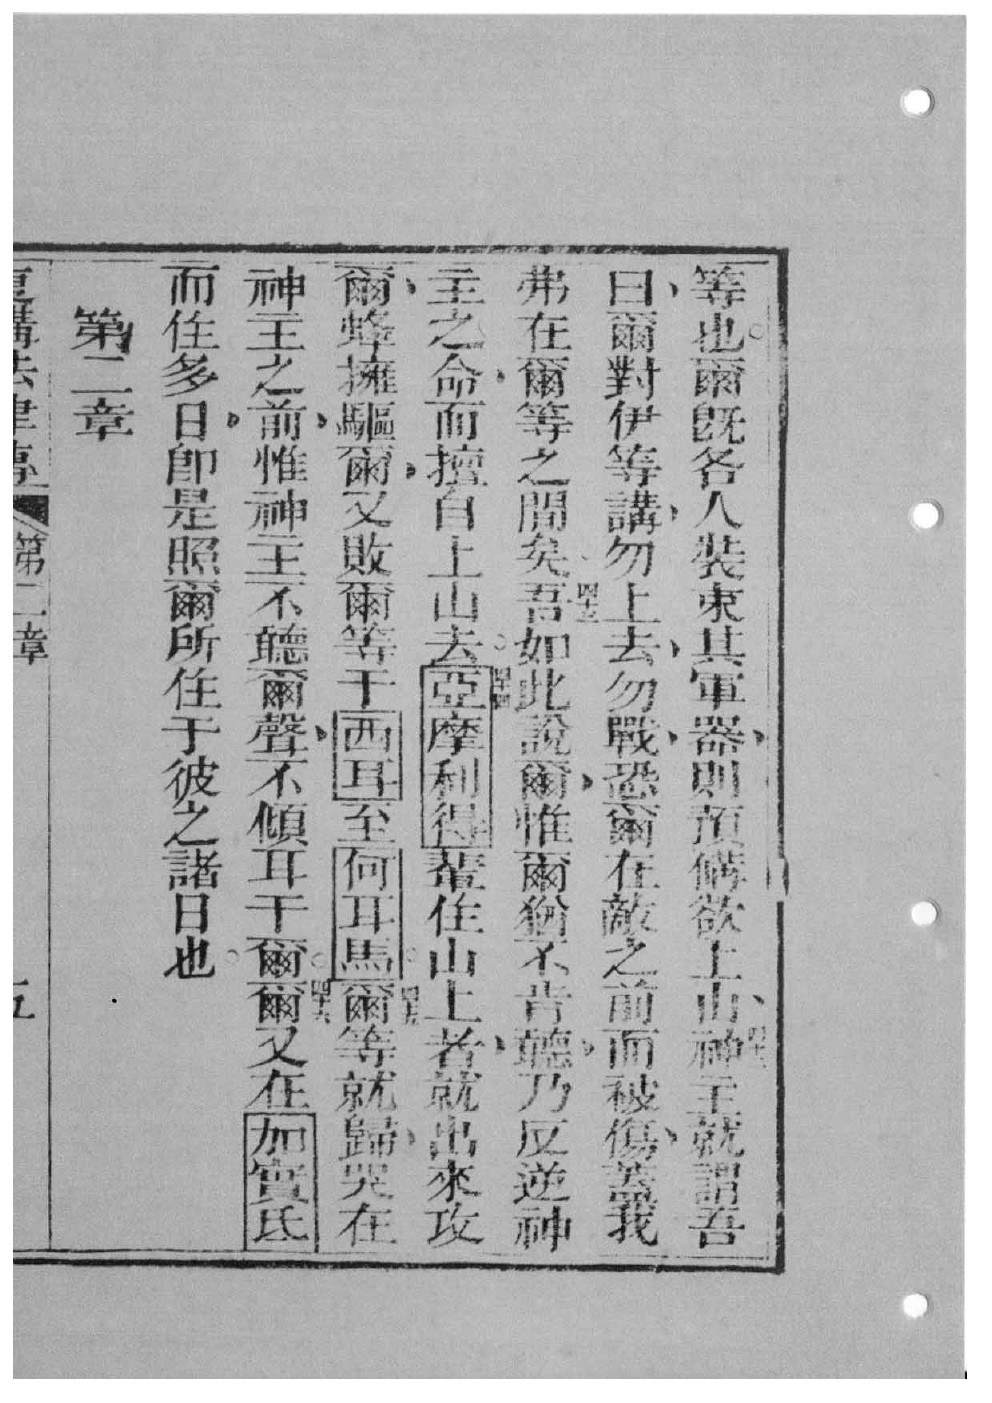 等也爾既各人裝束其軍器則預備欲上山四十二神主就謂吾
曰爾對伊等講勿上去勿戰恐爾在敵之前而被傷蓋我
弗在爾等之間矣四十三吾如此說爾惟爾猶不肯聽乃反逆神
主之命而擅自上山去四十四亞摩利得輩住山上者就出來攻
爾蜂擁驅爾又敗爾等于西耳至何耳馬四十五爾等就歸哭在
神主之前惟神主不聽爾聲不傾耳于爾四十六爾又在加實氏
而住多日即是照爾所住于彼之諸日也
第二章
復講法律傳 第二章 五